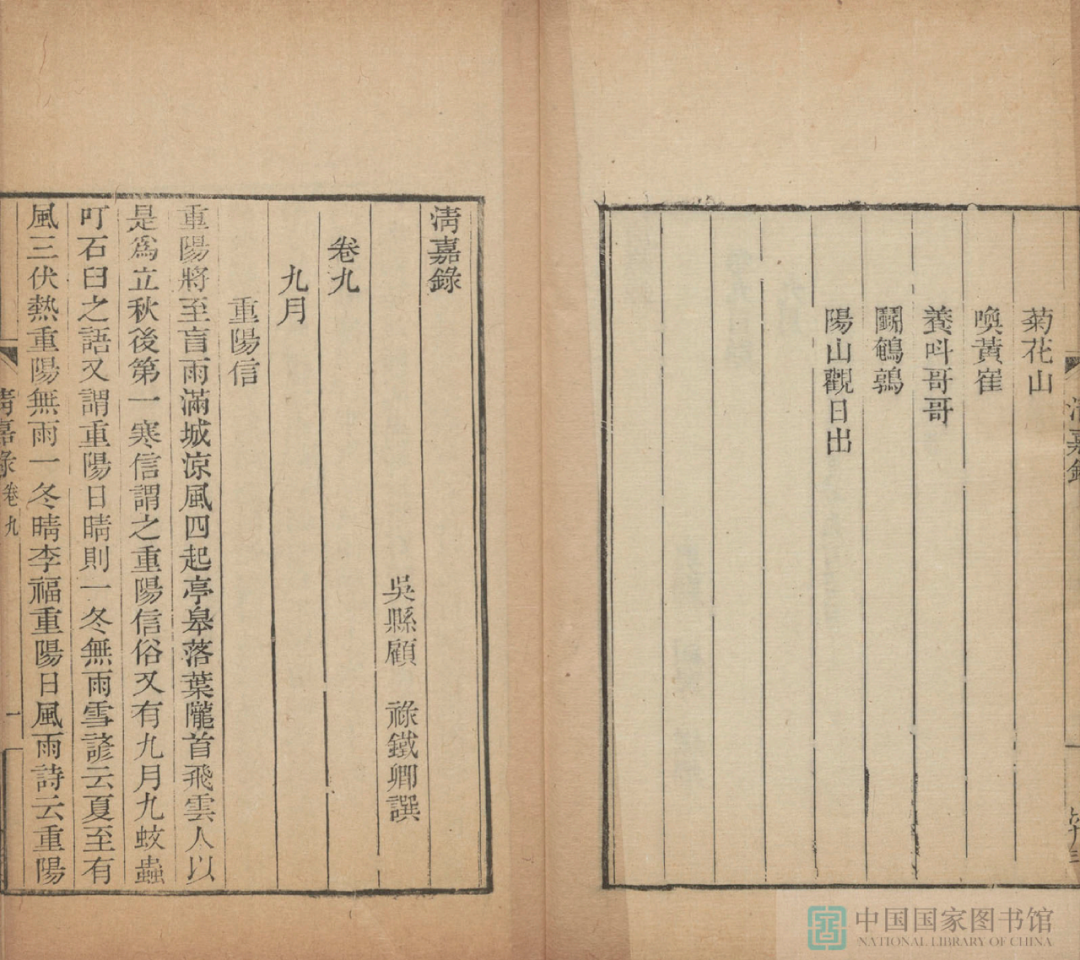 菊花山
喚黃雀
養呌哥哥
鬭鵪鶉
陽山觀日出
清嘉錄
吳縣顧 祿鐵卿譔
卷九
九月
重陽信
重陽將至盲雨滿城涼風四起亭皋落葉隴首飛雲人以
是爲立秋後第一寒信謂之重陽信俗又有九月九蚊蟲
叮石臼之語又謂重陽日晴則一冬無雨雪諺云夏至有
風三伏熱重陽無雨一冬晴李福重陽日風雨詩云重陽
清嘉錄 卷九 一
中国国家图书馆
NATIONAL LIBRARY OF CHINA